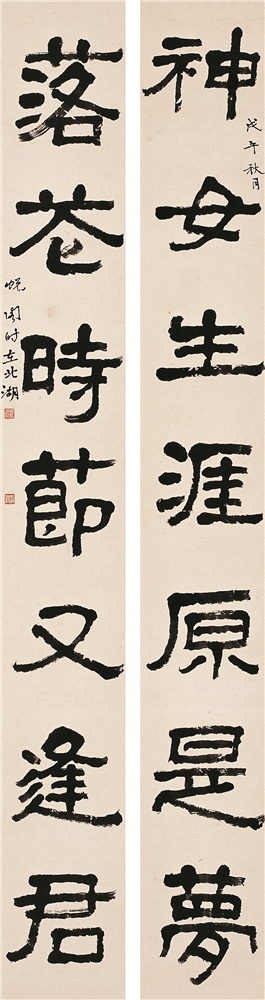 神女生涯原是夢
戊午秋月
落花時節又逢君
时在北湖